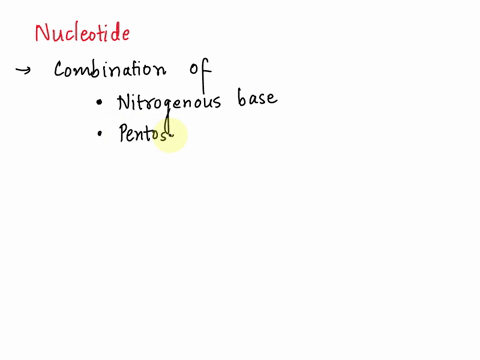 Nucleotide
→ Combination of
• Nitrogenous base
• Pentos